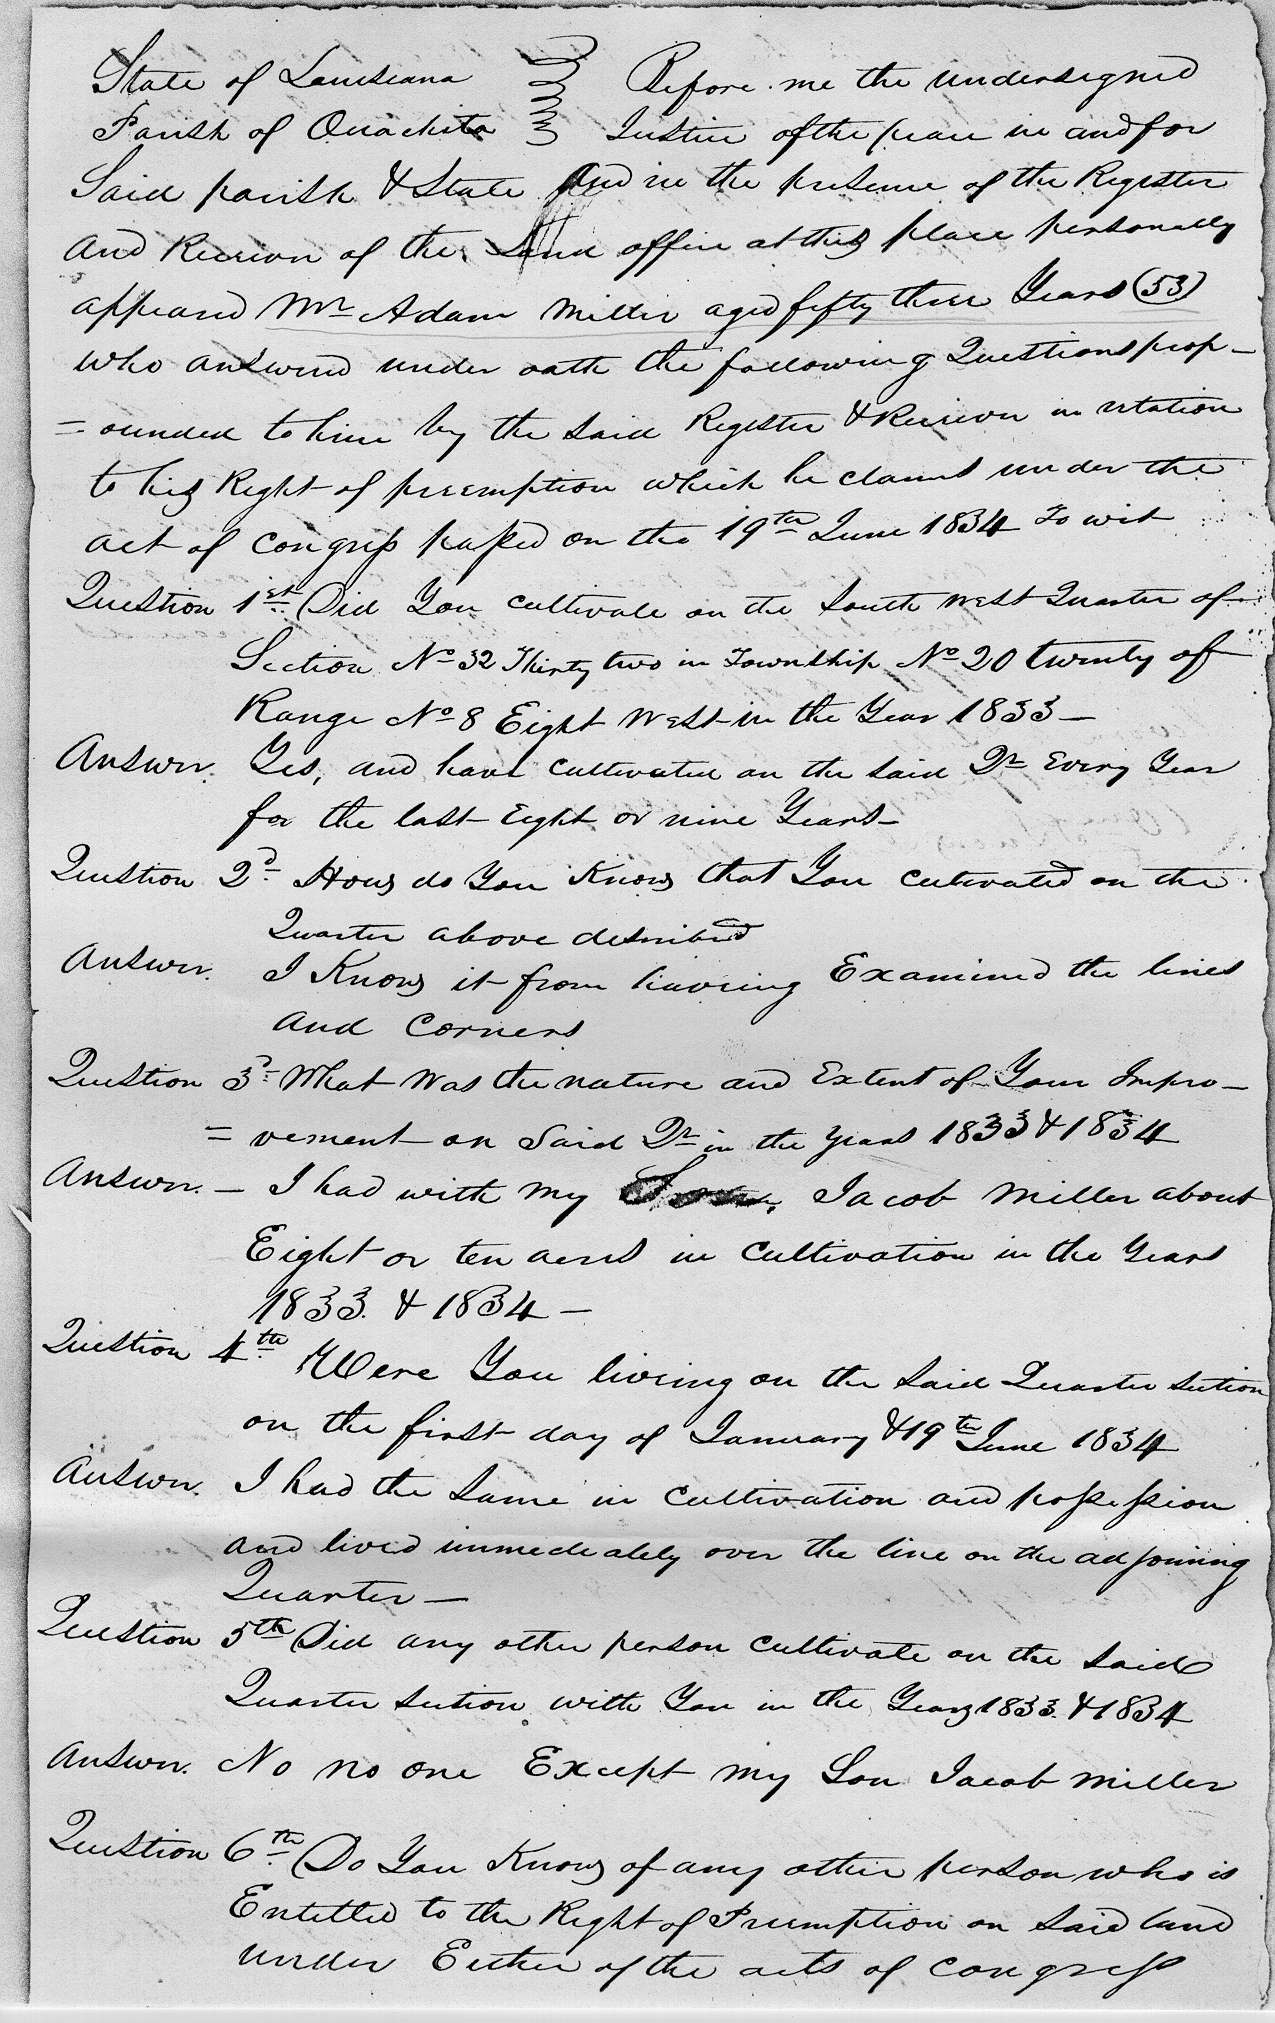 State of Louisiana Before me the undersigned
Parish of Ouachita Justice of the peace in and for
Said parish & State And in the presence of the Register
and Receiver of the Land office at this place personally
appeared Mr Adam Miller aged fifty three Years (53)
who answered under oath the following Questions prop-
=ounded to him by the Said Register & Receiver in relation
to his Right of preemption which he claims under the
act of Congress passed on the 19th June 1834 To wit
Question 1st Did You cultivate on the South West Quarter of
Section No 32 Thirty two in Township No 20 twenty of
Range No 8 Eight West in the Year 1833 —
Answer. Yes, and have cultivated on the said Qr Every Year
for the last Eight or nine Years —
Question 2d How do You Know that You cultivated on the
Quarter above described
Answer. I Know it from having Examined the lines
and Corners
Question 3d What Was the nature and Extent of Your Impro-
=vement on Said Qr in the years 1833 & 1834
Answer. — I had with my Son, Jacob Miller about
Eight or ten acres in Cultivation in the Years
1833. & 1834 —
Question 4th Were You living on the Said Quarter Section
on the first day of January & 19th June 1834
Answer. I had the Same in Cultivation and possession
and lived immedeately over the line on the adjoining
Quarter —
Question 5th Did any other person Cultivate on the Said
Quarter Section with You in the Years 1833. & 1834
Answer. No no one Except my Son Jacob Miller
Question 6th Do You Know of any other person who is
Entitled to the Right of Preemption on Said land
under Either of the acts of Congress